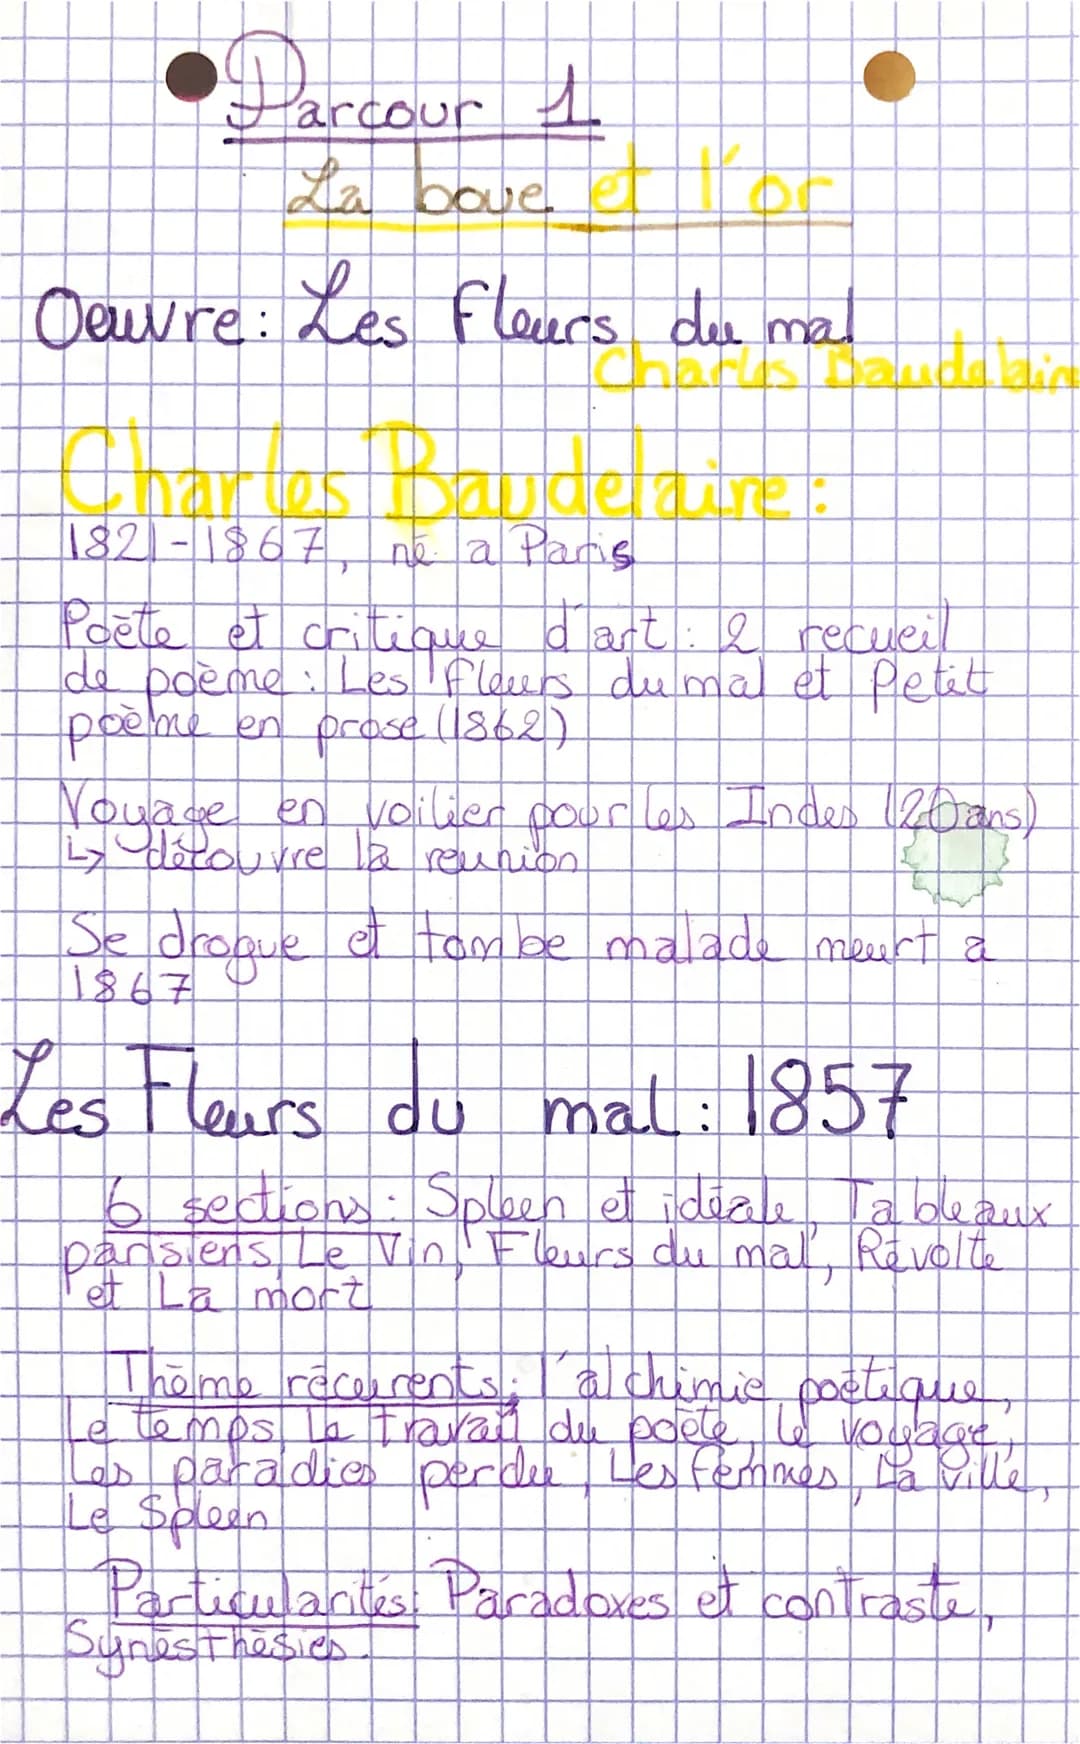 Parcour 1
La boue et l'or
Oeuvre: Les fleurs du mal
Charles Baudelaire
Charles Baudelaire:
1821-1867, né a Paris
Poète et critique d'art: 2 recueil
de poème: Les fleurs du mal et Petit
poème en prose (1862)
Voyage en voilier pour les Indes (20 ans)
↳ découvre la reunion
Se drogue et tombe malade meurt a
1867
Les Fleurs du mal: 1857
6 sections: Spleen et idéale, Tableaux
parisiens, Le Vin, Fleurs du mal, Révolte
et La mort
Thème récurents: l'alchimie poétique,
Le temps, le travail du poète, le voyage,
Les paradies perdu, Les femmes, La ville,
Le Spleen
Particularités: Paradoxes et contraste,
Synesthésies.